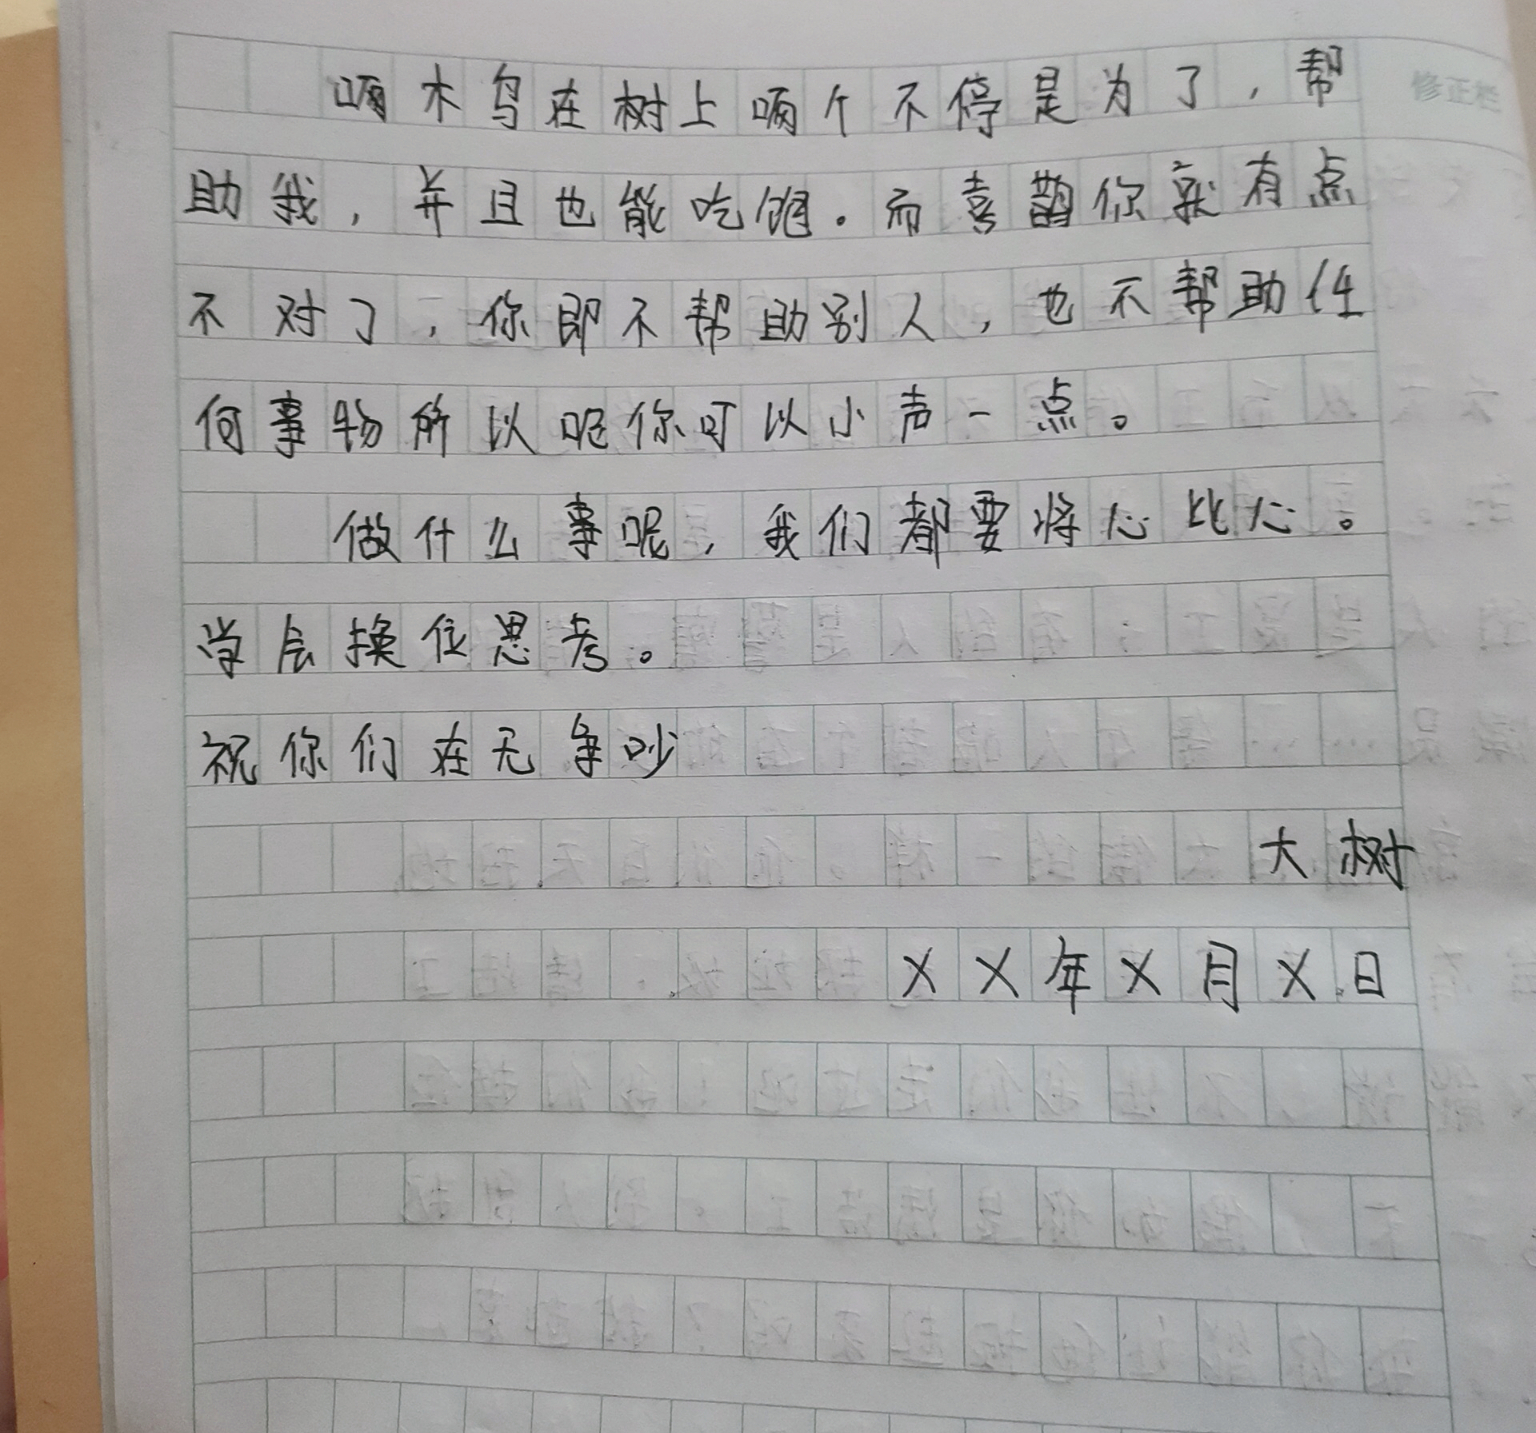 啄木鸟在树上啄个不停是为了，帮
助我，并且也能吃饱。而喜鹊你就有点
不对了，你即不帮助别人，也不帮助任
何事物所以呢你可以小声一点。
做什么事呢，我们都要将心比心。
学会换位思考。
祝你们在无争吵
大树
XX年X月X日
修正栏